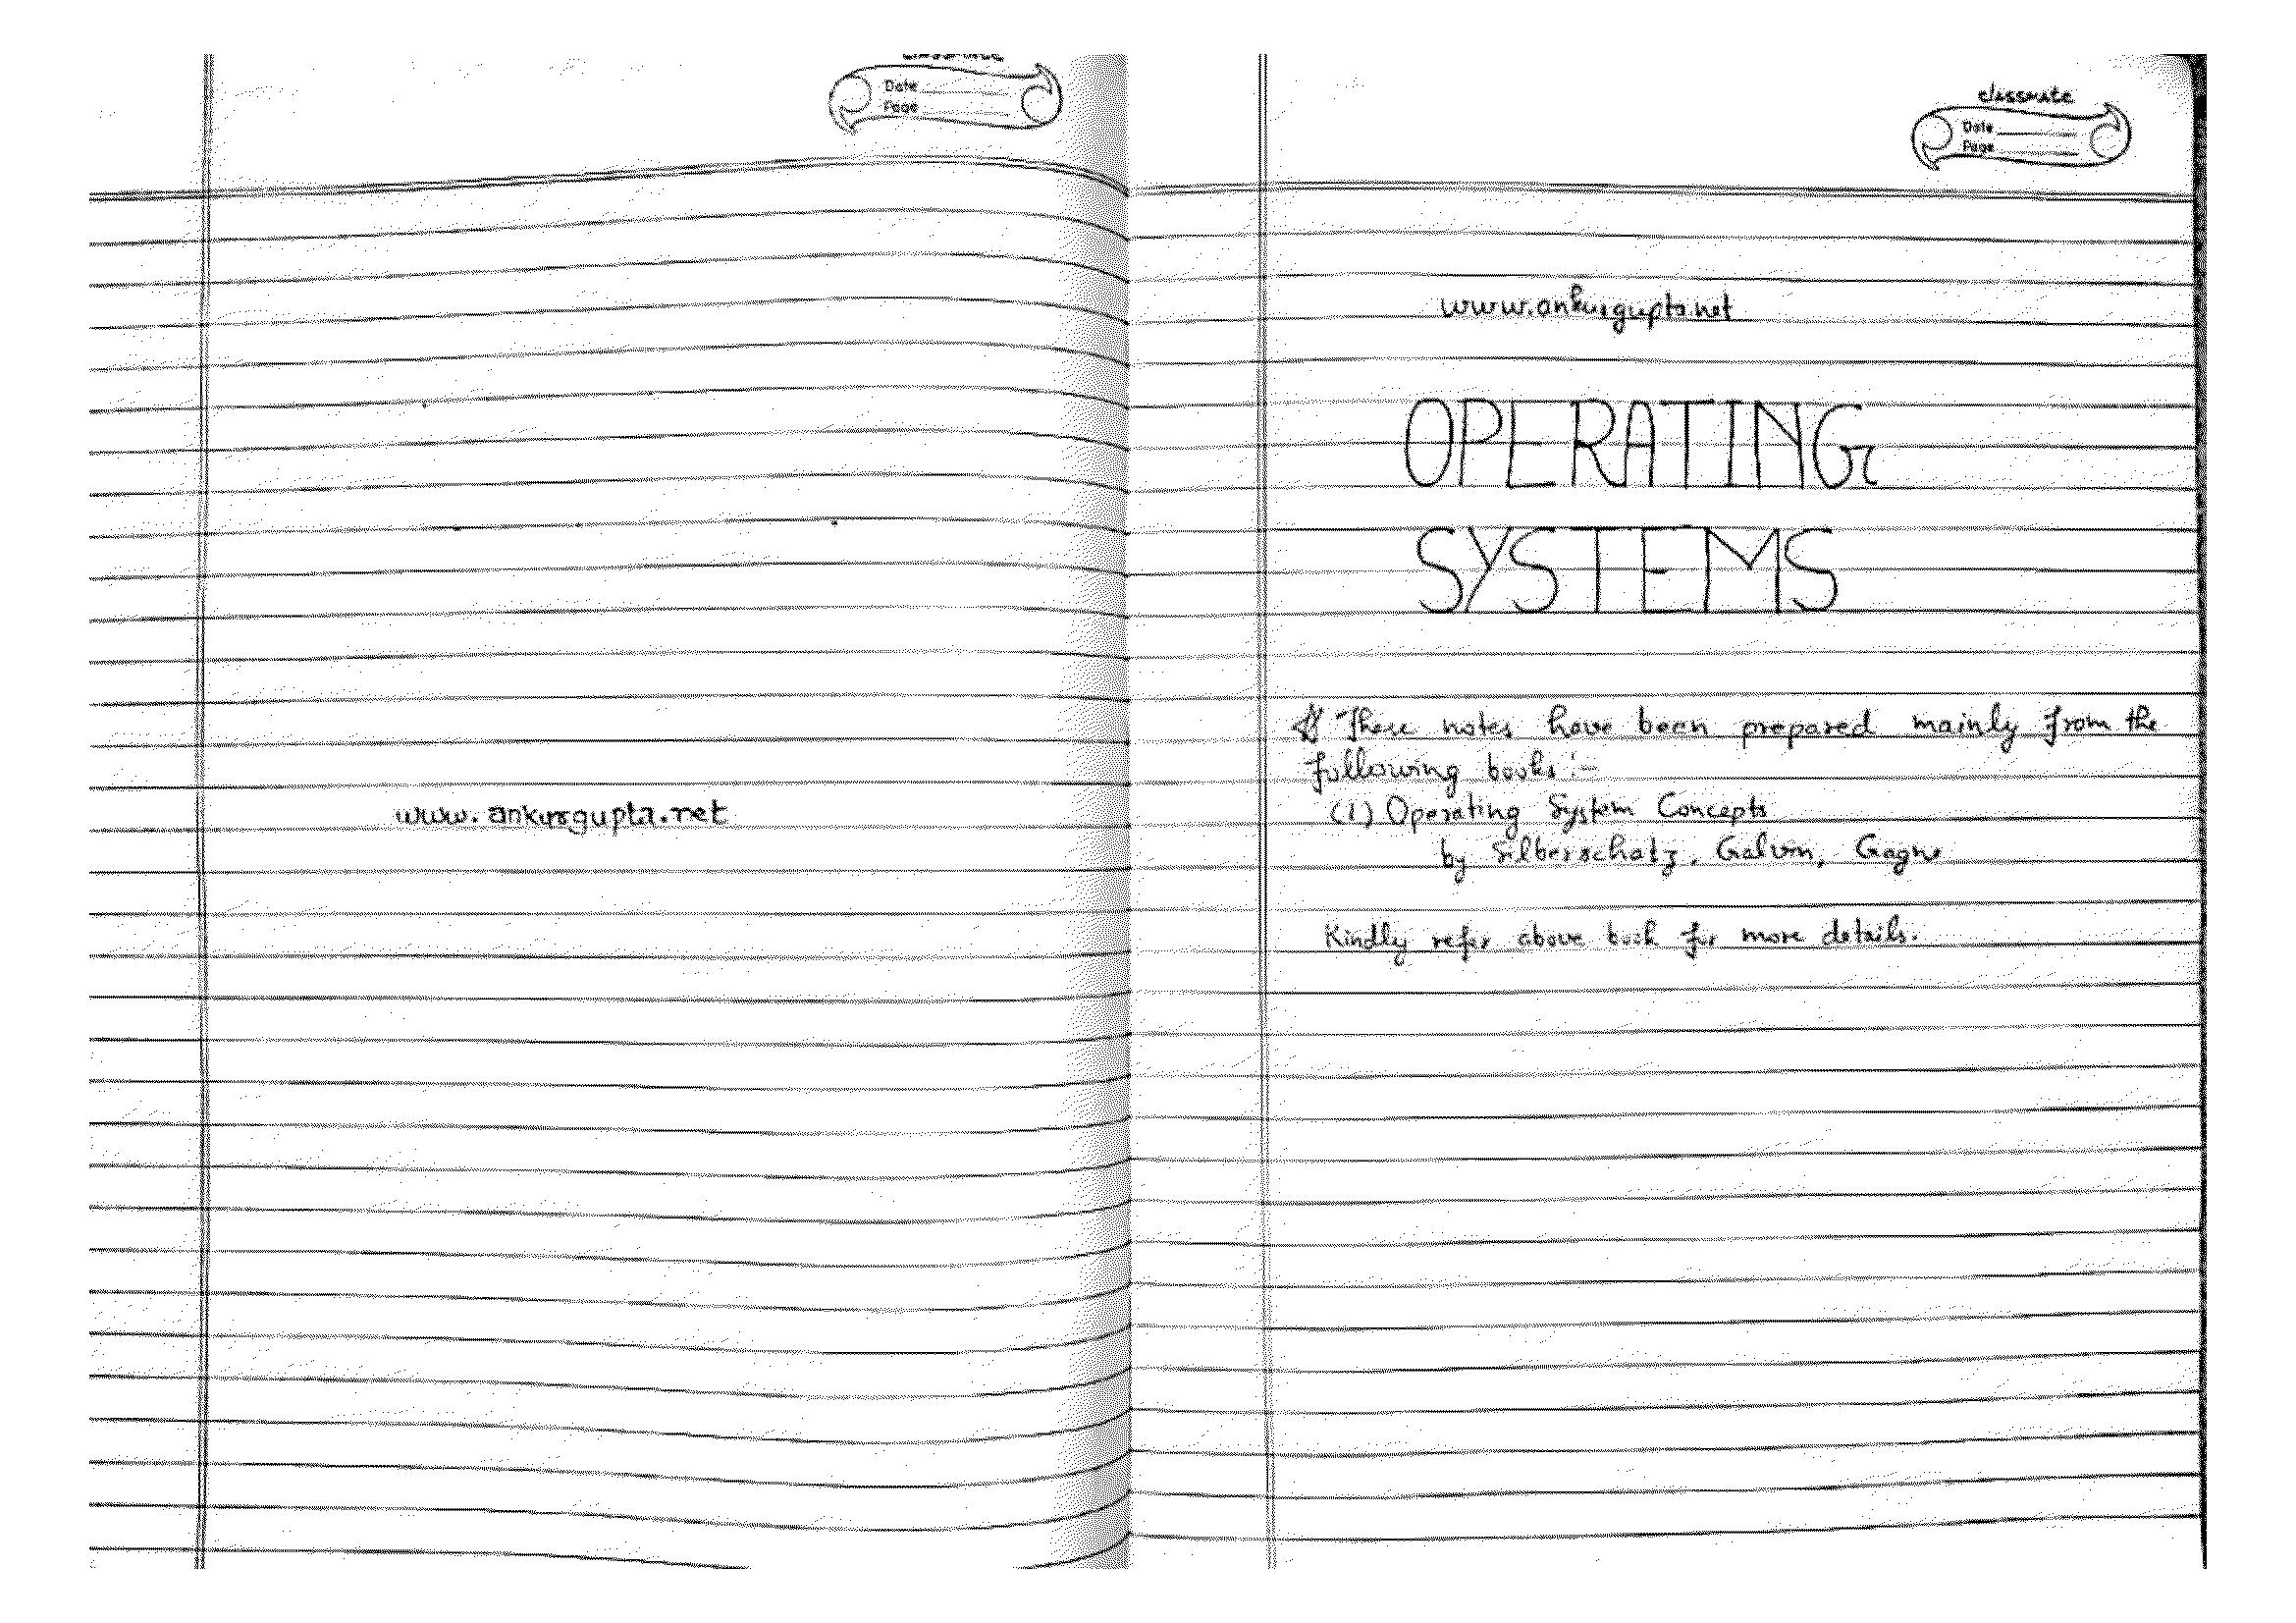 classmate
Date
Page
www.ankurgupta.net
classmate
Date
Page
www.ankurgupta.net
OPERATING
SYSTEMS
These notes have been prepared mainly from the
following books :-
(1) Operating System Concepts
by Silberschatz, Galvin, Gagne
Kindly refer above book for more details.